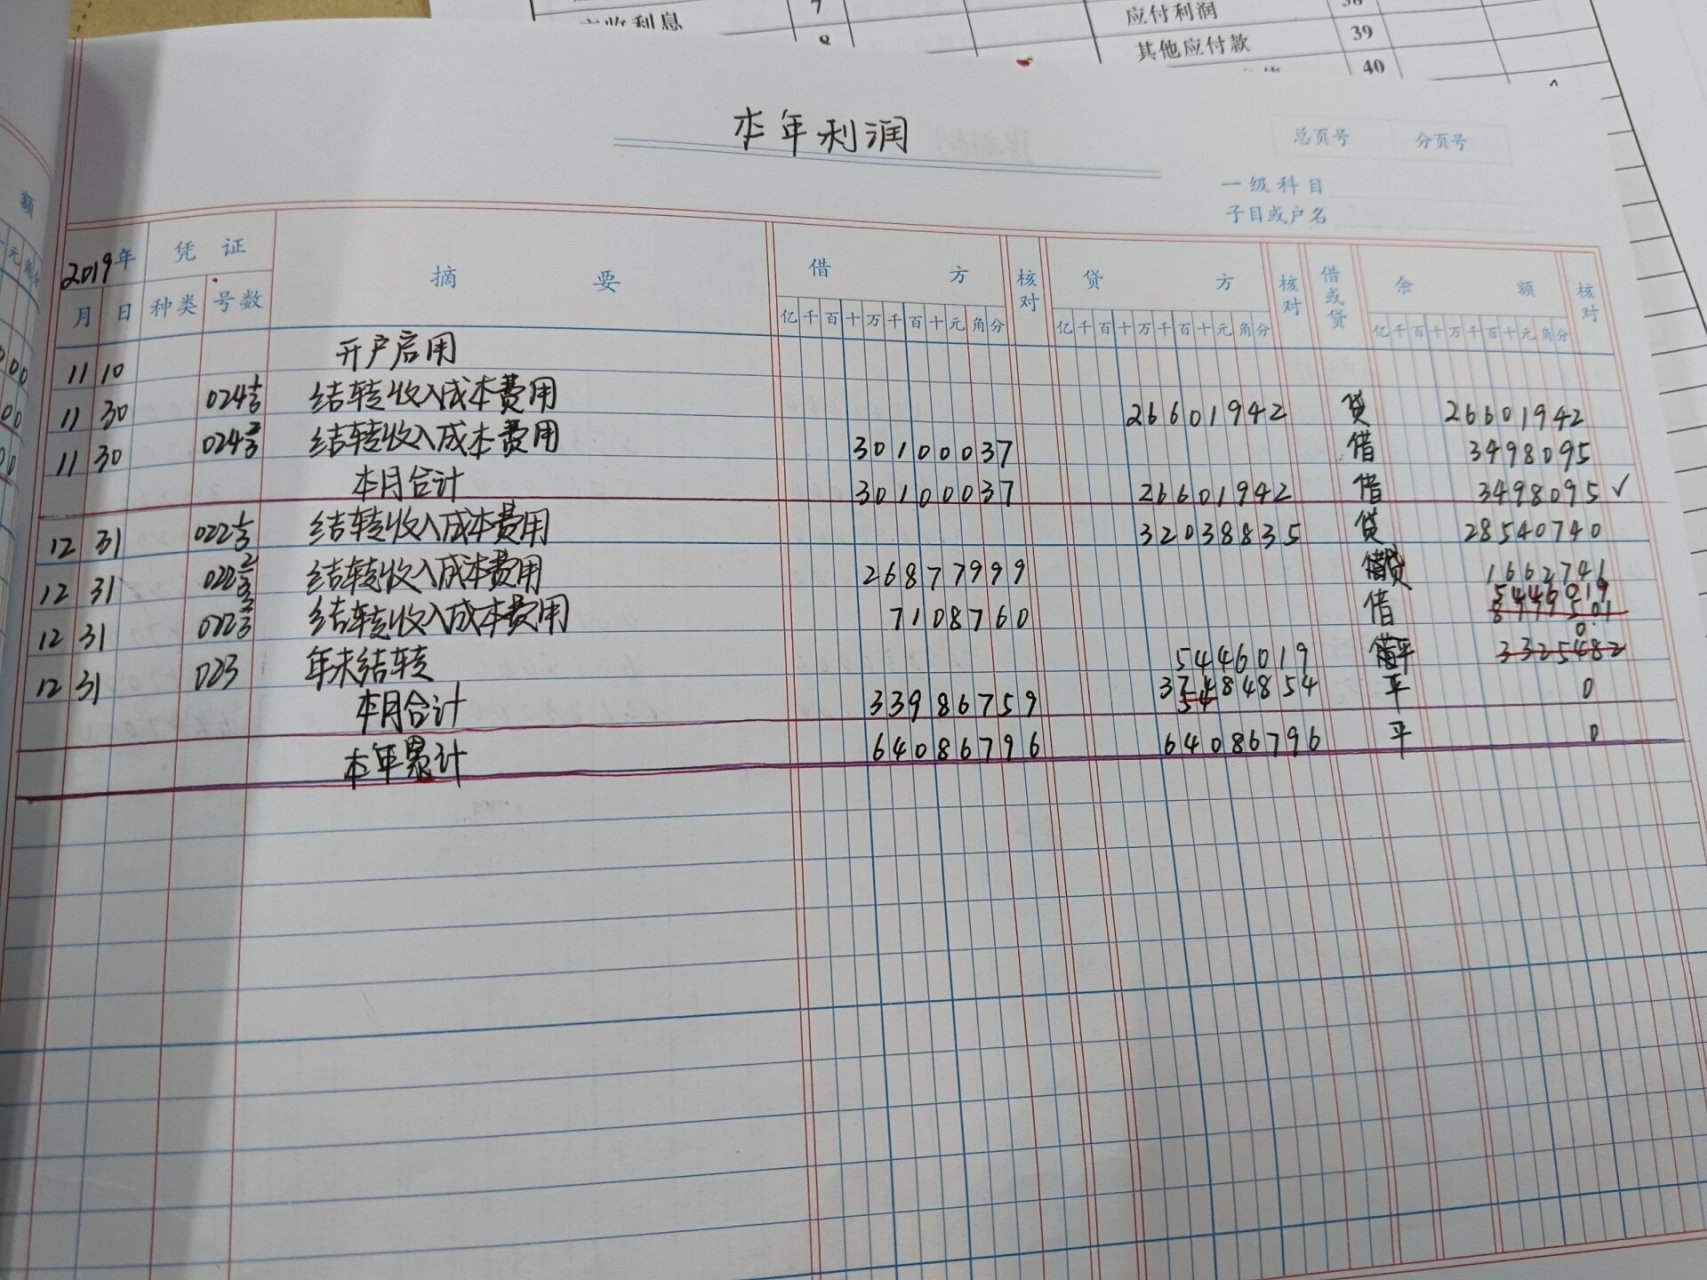 应收利息 7 应付利润 38
8 其他应付款 39
40
本年利润
总页号 分页号
一级科目
子目或户名
2019年 凭证 摘要 借方 核对 贷方 核对 借或贷 余额 核对
月 日 种类 号数 亿千百十万千百十元角分 亿千百十万千百十元角分 亿千百十万千百十元角分
11 10 开户启用
11 30 024 1/2 结转收入成本费用 26601942 贷 26601942
11 30 024 2/2 结转收入成本费用 30100037 借 3498095
本月合计 30100037 26601942 借 3498095 ✓
12 31 022 1/3 结转收入成本费用 32038835 贷 28540740
12 31 022 2/3 结转收入成本费用 26877999 贷 1662741
12 31 022 3/3 结转收入成本费用 7108760 借 5446019
12 31 023 年末结转 5446019 平 0
3325482
本月合计 33986759 37484854 平 0
本年累计 64086796 64086796 平 0